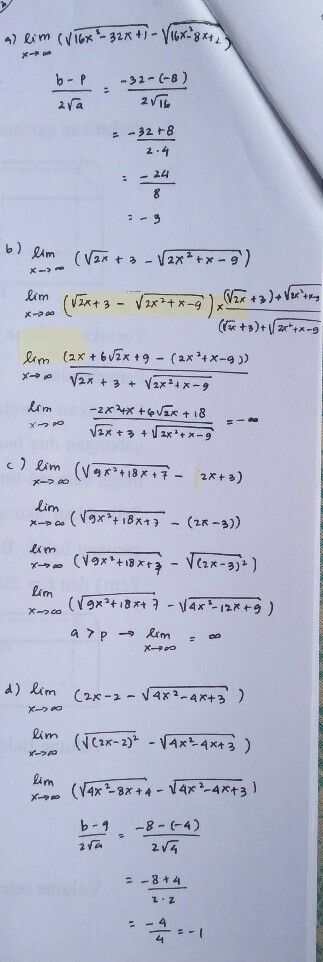 a) lim x→∞ (√16x²-32x+1 - √16x²-8x+2)
b-p / 2√a = -32-(-8) / 2√16
= -32+8 / 2.4
= -24 / 8
= -3
b) lim x→∞ (√2x + 3 - √2x²+x-9)
lim x→∞ (√2x+3 - √2x²+x-9) × (√2x+3)+√2x²+x-9 / (√2x+3)+√2x²+x-9
lim x→∞ (2x+6√2x+9 - (2x²+x-9)) / √2x + 3 + √2x²+x-9
lim x→∞ -2x²+x+6√2x+18 / √2x + 3 + √2x²+x-9 = -∞
c) lim x→∞ (√9x²+18x+7 - 2x+3)
lim x→∞ (√9x²+18x+7 - (2x-3))
lim x→∞ (√9x²+18x+7 - √(2x-3)²)
lim x→∞ (√9x²+18x+7 - √4x²-12x+9)
a > p → lim x→∞ = ∞
d) lim x→∞ (2x-2 - √4x²-4x+3)
lim x→∞ (√(2x-2)² - √4x²-4x+3)
lim x→∞ (√4x²-8x+4 - √4x²-4x+3)
b-q / 2√a = -8-(-4) / 2√4
= -8+4 / 2.2
= -4 / 4 = -1